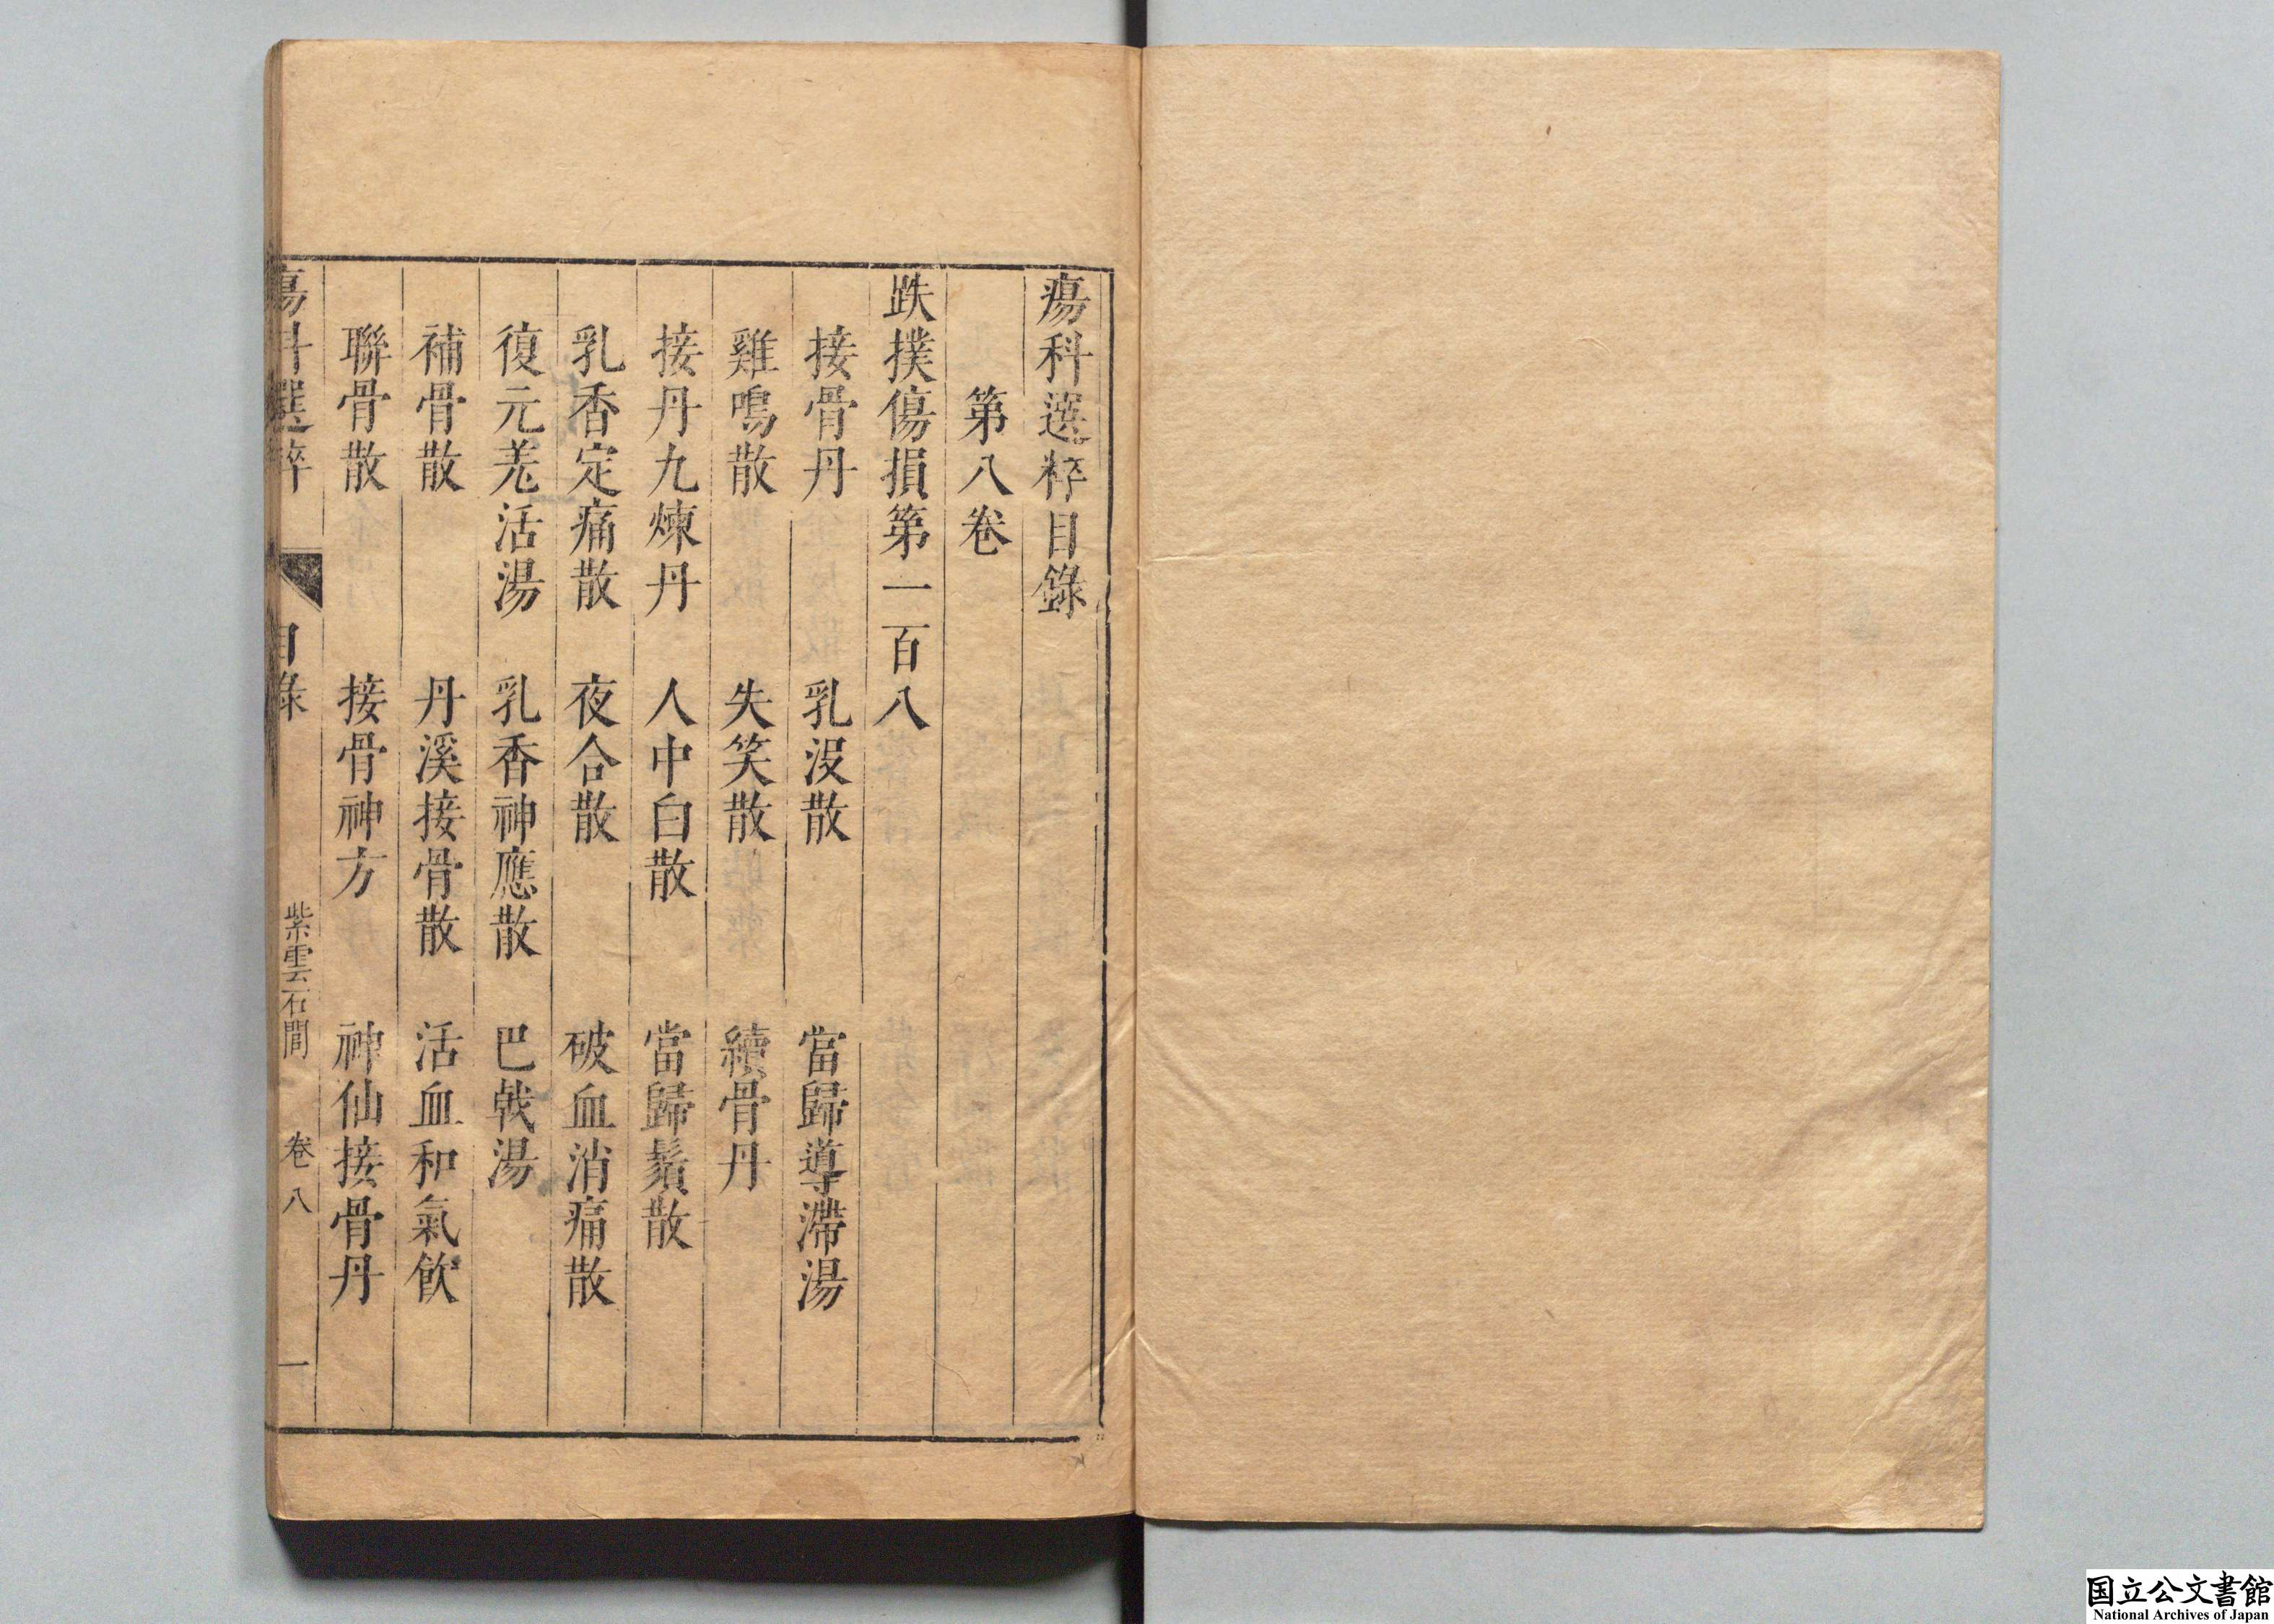 瘍科選粹目錄
第八卷
跌撲傷損第一百八
接骨丹 乳沒散 當歸導滯湯
雞鳴散 失笑散 續骨丹
接丹九煉丹 人中白散 當歸鬚散
乳香定痛散 夜合散 破血消痛散
復元羌活湯 乳香神應散 巴戟湯
補骨散 丹溪接骨散 活血和氣飲
聯骨散 接骨神方 神仙接骨丹
瘍科選粹 目錄 紫雲石間 卷八 一
国立公文書館
National Archives of Japan